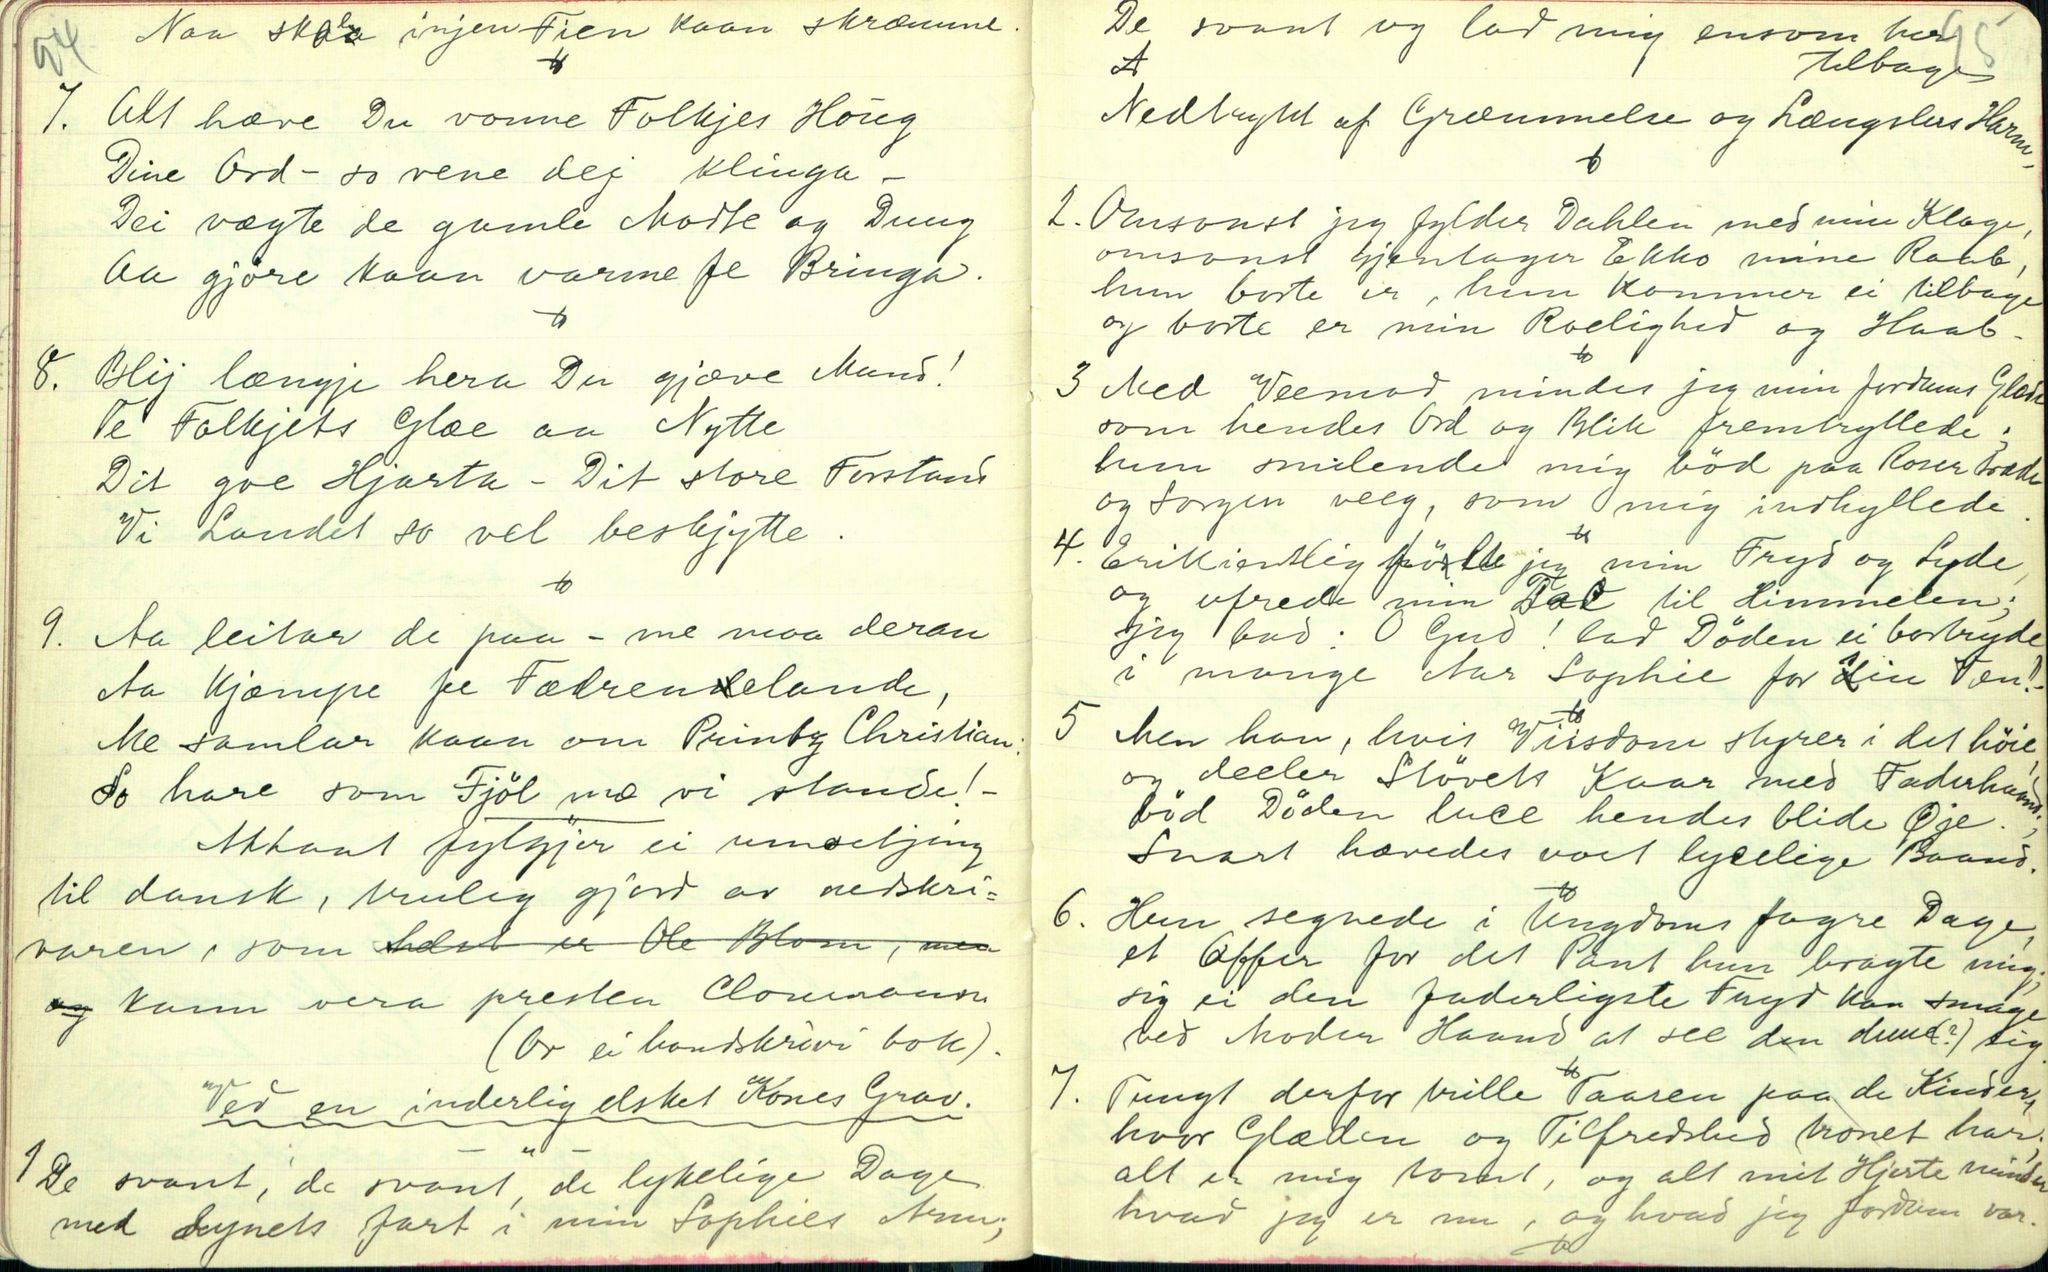 94
Naa skala injen Fien kaan skræmme.
7. Alt hæve Du vonne Folkjes Höug
Dine Ord - so vene dej klinga -
Dei vægte de gamle Modte og Duug
Aa gjöre kaan varme fe Bringa.
8. Blij længje hera Du gjæve Mand!
Te Folkjets Glæe aa Nytte
Dit goe Hjarta - Dit store Forstand
Vi Landet so vel beskjytte.
9. Aa leitar de paa - me maa deran
Aa kjæmpe fe Fædrenelande,
Me samlar kaan om Printz Christian:
So hare som Fjöl mæ vi stande! -
Attaat fylgjer ei umsetjing
til dansk, truleg gjord av nedskri=
varen, som helst er Ole Blom, men
og kann vera presten Clowmann
(Or ei handskrivi bok).
Ved en inderlig elsket Kones Grav.
1 De svant, de svant, de lykkelige Dage
med Lynets fart i min Sophies Arm;
95
De svant og lad mig ensom her
tilbage
Nedtrykt af Græmmelse og Længslers Harm,
2. Omsonst jeg fylder Dahlen med min Klage,
omsonst gjentager Ekko mine Raab,
hun borte er, hun kommer ei tilbage
og borte er min Roelighed og Haab -
3 Med Veemod mindes jeg min fordums Glæde
som hendes Ord og Blik fremtryllede;
hun smilende mig böd paa Roser træde
og Sorgen veeg, som mig indhyllede.
4. Erkientlig følte jeg min Fryd og Lyde,
og ofrede min Tak til Himmelen;
jeg bad: O Gud! lad Döden ei bortryde
i mange Aar Sophie for sin Ven! -
5 Men han, hvis Viisdom styrer i det höie,
og deeler Stövets Kaar med Faderhaand,
böd Döden lucce hendes blide Øje.
Snart hævedes vort lyccelige Baand.
6. Hun segnede i Ungdoms fagre Dage,
et Offer for det Pant hun bragte mig;
sig ei den faderligste Fryd kan smage
ved Moder Haand at see den dune(?) sig.
7. Tungt derfor trille Taaren paa de Kinder,
hvor Glæden og Tilfredshed tronet har,
alt er mig tomt, og alt mit Hjerte minder
hvad jeg er nu, og hvad jeg fordum var.